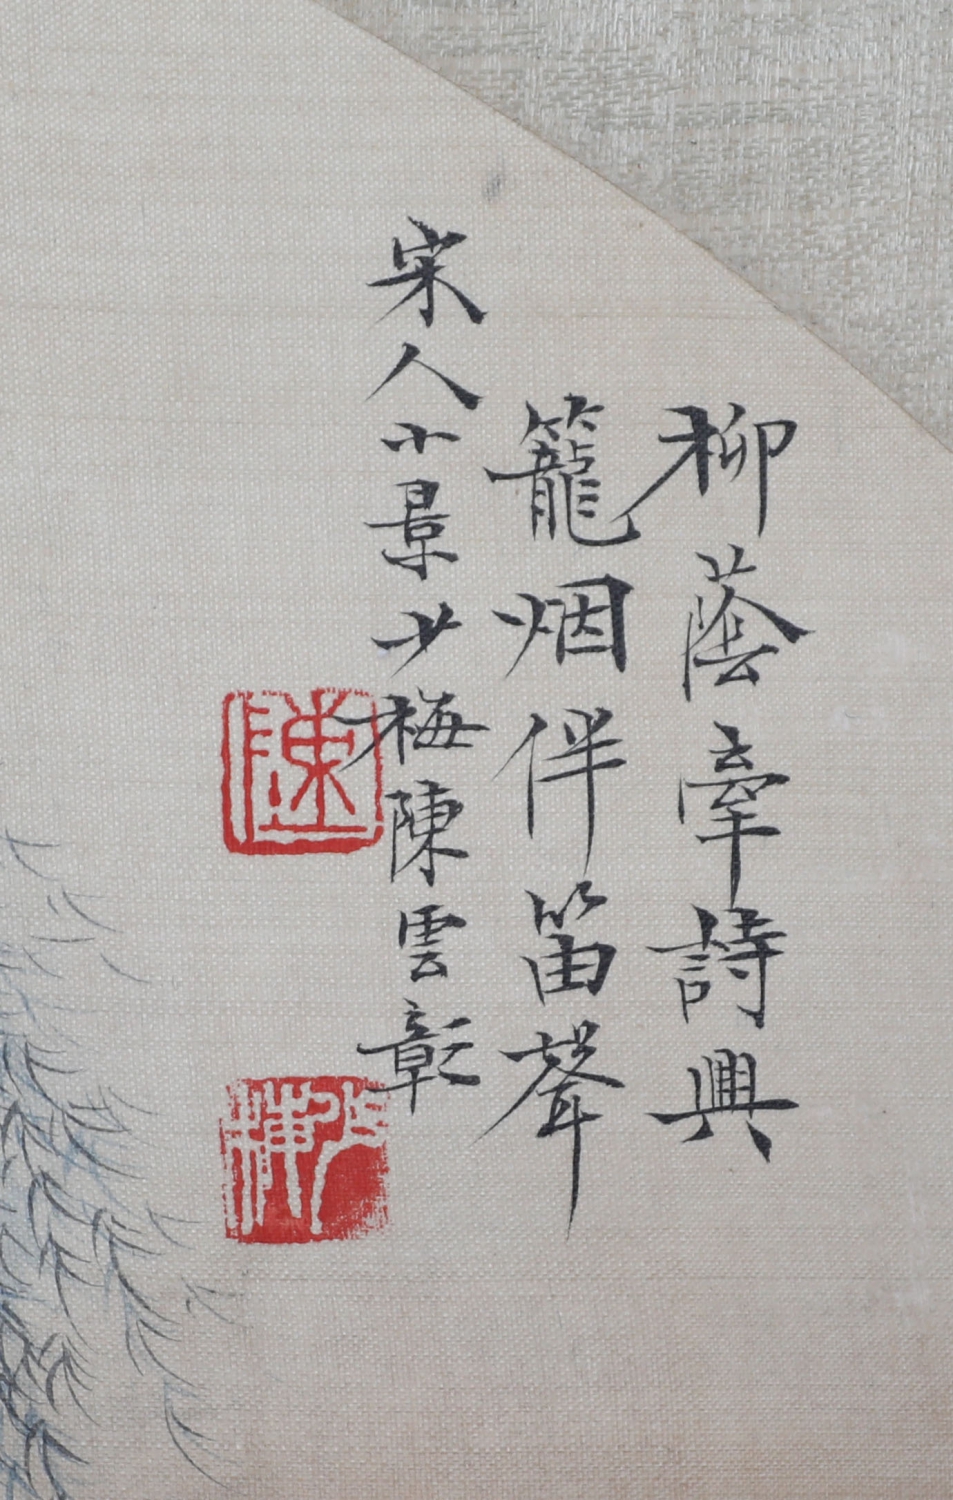 柳蔭牽詩興
籠烟伴笛聲
宋人小景少梅陳雲彰
陳